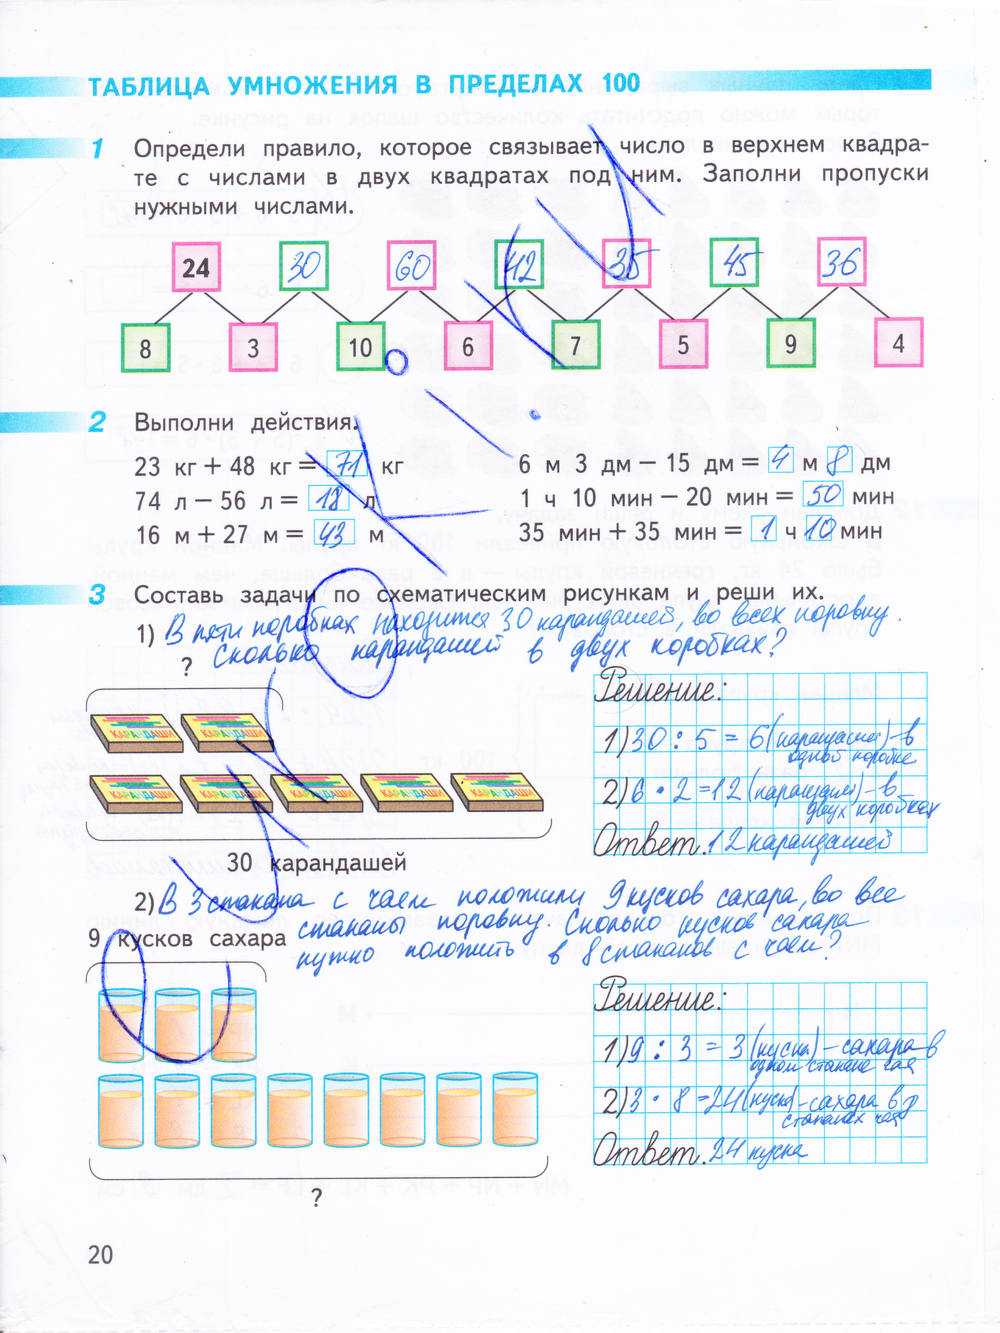 ТАБЛИЦА УМНОЖЕНИЯ В ПРЕДЕЛАХ 100
1 Определи правило, которое связывает число в верхнем квадра-
те с числами в двух квадратах под ним. Заполни пропуски
нужными числами.
24 30 60 42 35 45 36
8 3 10 6 7 5 9 4
2 Выполни действия.
23 кг + 48 кг = 71 кг
6 м 3 дм − 15 дм = 4 м 8 дм
74 л − 56 л = 18 л
1 ч 10 мин − 20 мин = 50 мин
16 м + 27 м = 43 м
35 мин + 35 мин = 1 ч 10 мин
3 Составь задачи по схематическим рисункам и реши их.
1) В пяти коробках находится 30 карандашей, во всех поровну.
Сколько карандашей в двух коробках?
?
КАРАНДАШИ КАРАНДАШИ
КАРАНДАШИ КАРАНДАШИ КАРАНДАШИ КАРАНДАШИ КАРАНДАШИ
30 карандашей
Решение:
1) 30 : 5 = 6 (карандашей) - в
одной коробке
2) 6 · 2 = 12 (карандашей) - в
двух коробках
Ответ. 12 карандашей
2) В 3 стакана с чаем положили 9 кусков сахара, во все
стаканы поровну. Сколько кусков сахара
нужно положить в 8 стаканов с чаем?
9 кусков сахара
?
Решение:
1) 9 : 3 = 3 (куска) - сахара в
одном стакане чая
2) 3 · 8 = 24 (куска) - сахара в 8
стаканах чая
Ответ. 24 куска
20